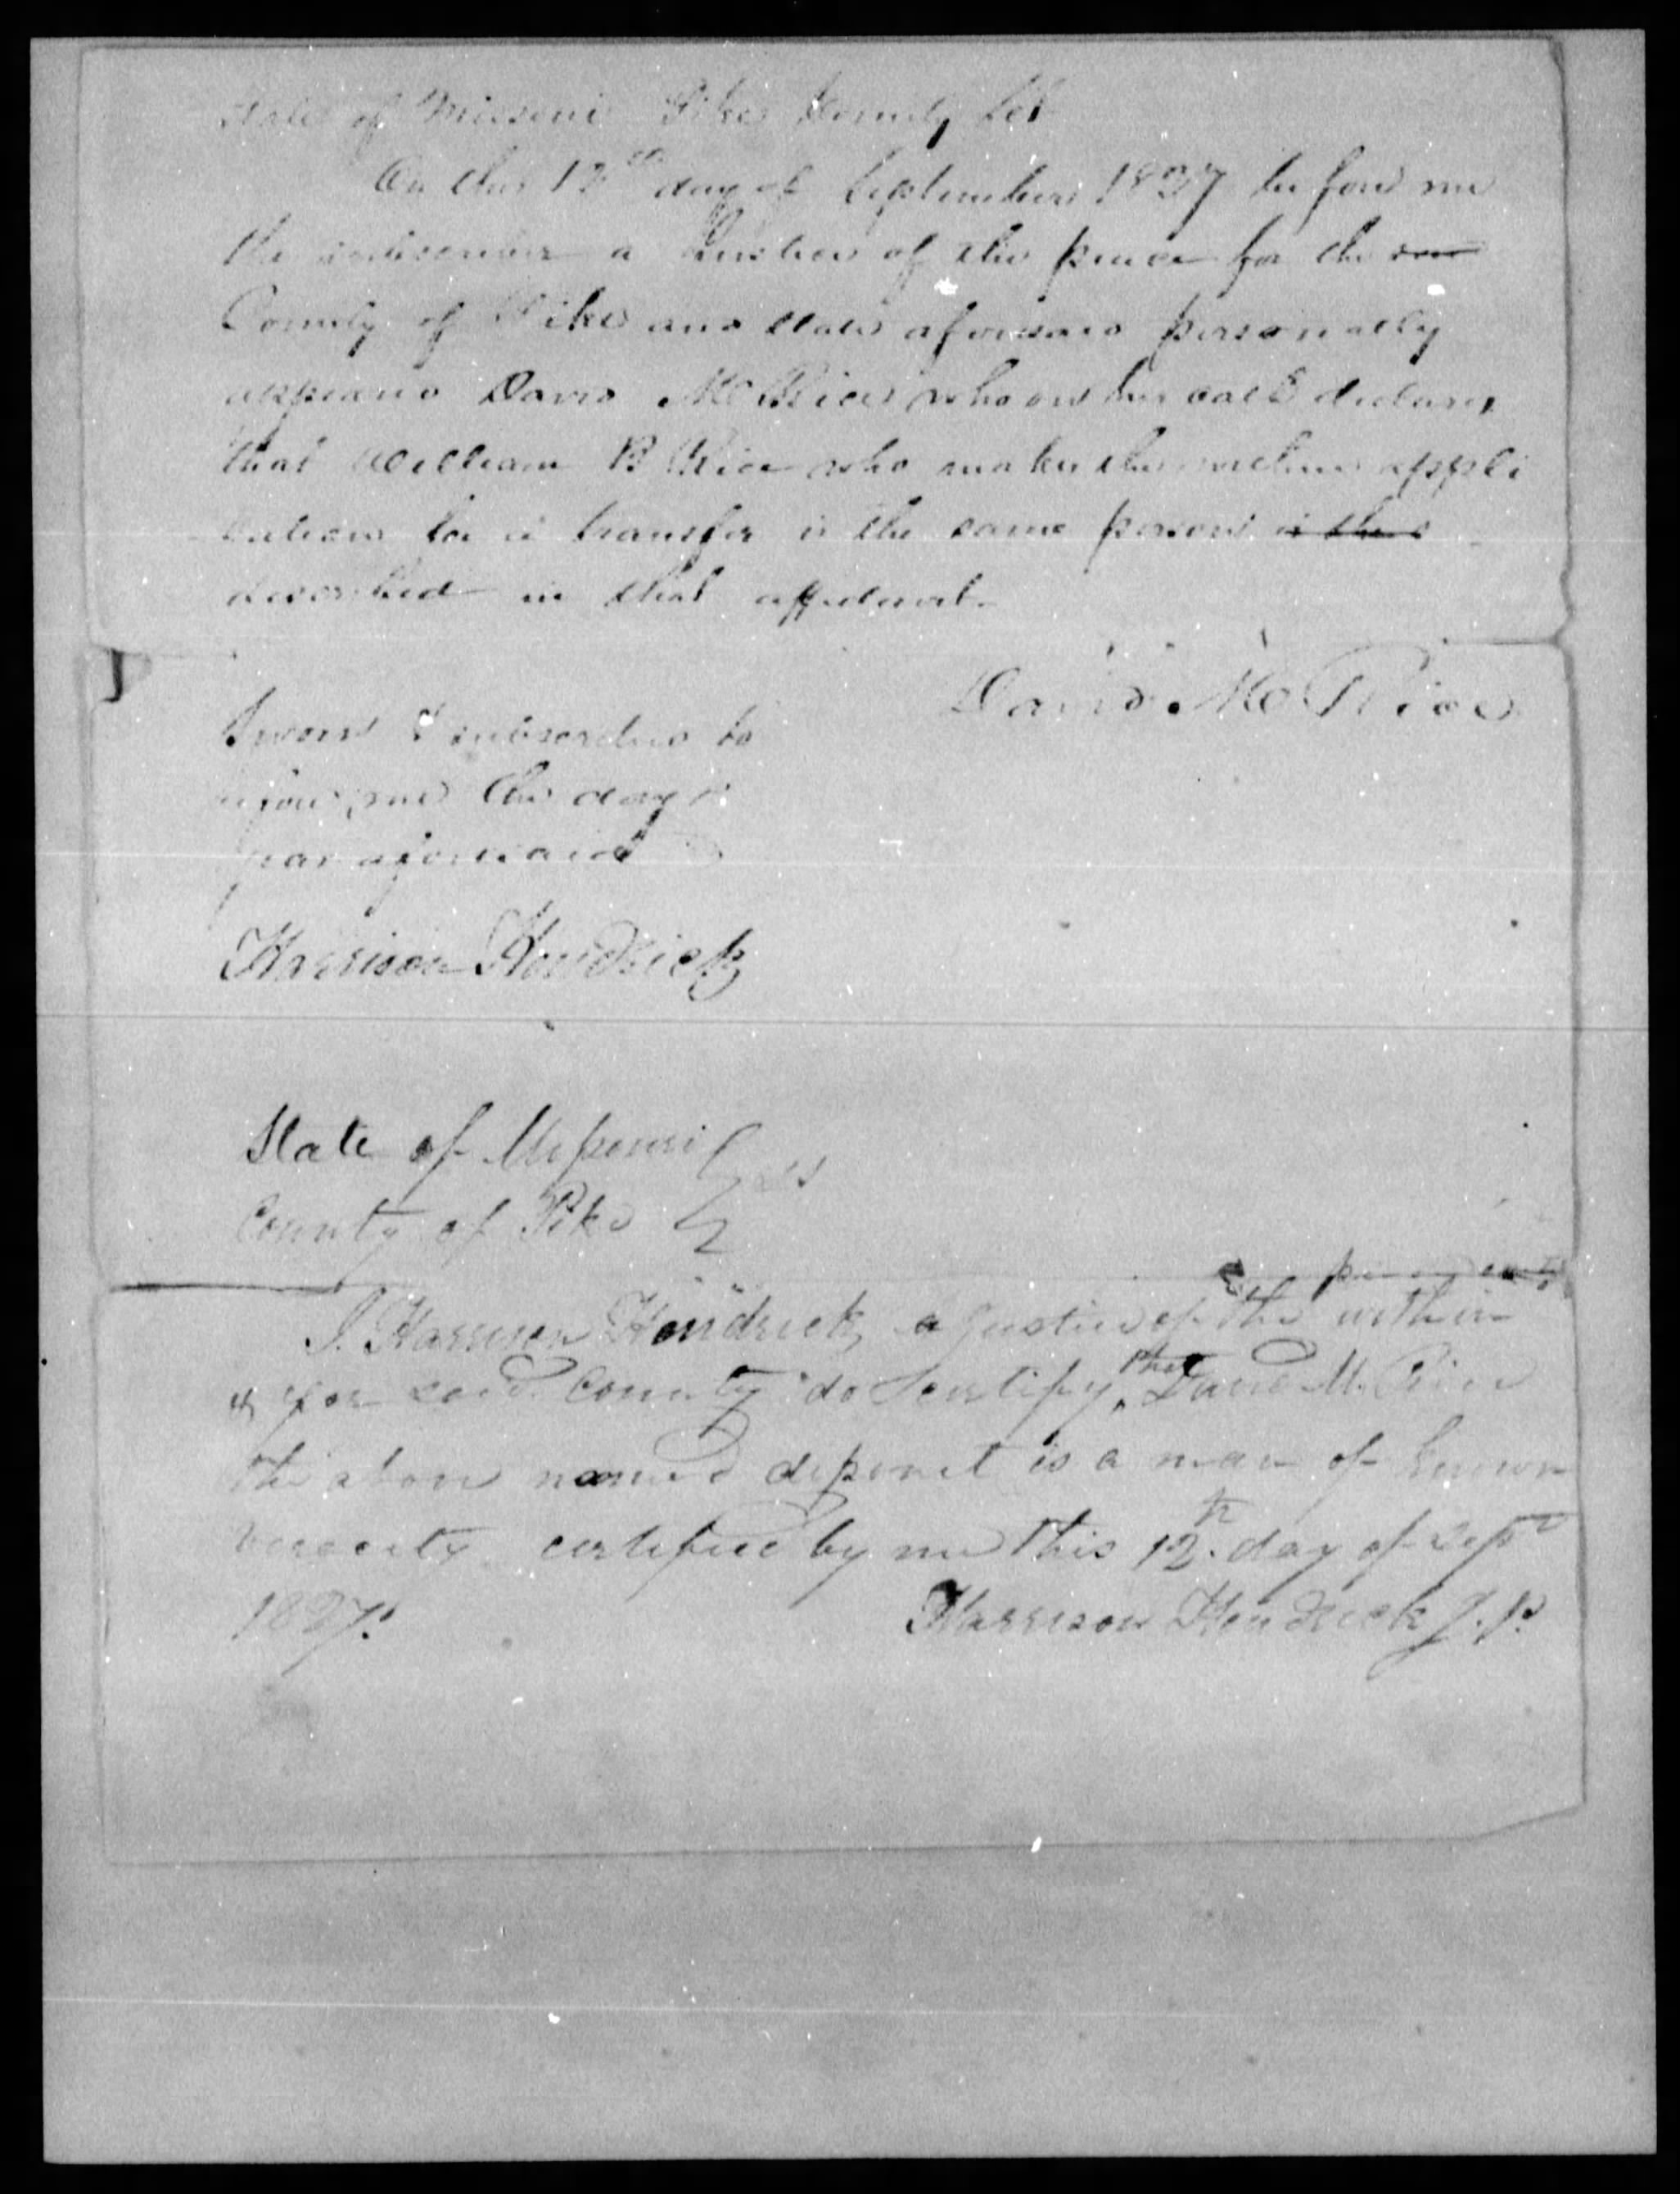 State of Missouri Pike County Sct
On this 12th day of September 1837 before me
the subscriber a Justice of the peace for the
County of Pike and State aforesaid personally
appeared David McRice who on his oath declares
that William B Rice who makes the within appli
cation for a transfer is the same person is the
described in that affidavit
David McRice
Sworn & subscribed to
before me the day &
year aforesaid
Harrison Hendrick
State of Missouri } ss
County of Pike
peace
I. Harrison Hendrick a Justice of the within
& for said County do certify that David M. Rice
the above named deponet is a man of known
veracity certified by me this 12th day of Sept
1837.
Harrison Hendrick J.P.